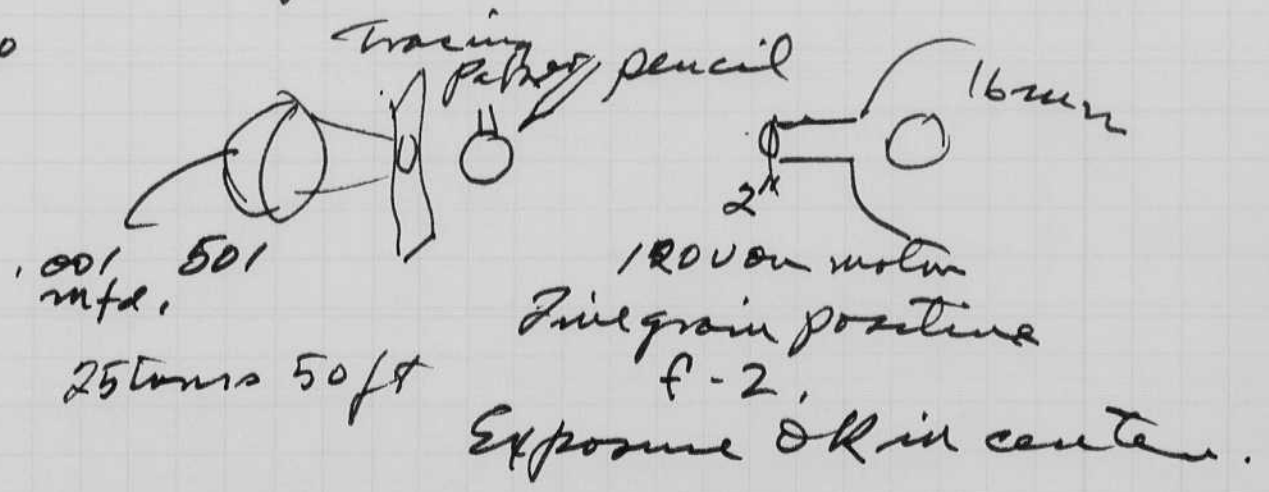 Tracing
paper pencil
16mm
2"
.001 501
mfd.
120 v on motor
Fine grain positive
25 turns 50 ft
f-2.
Exposure OK in center.